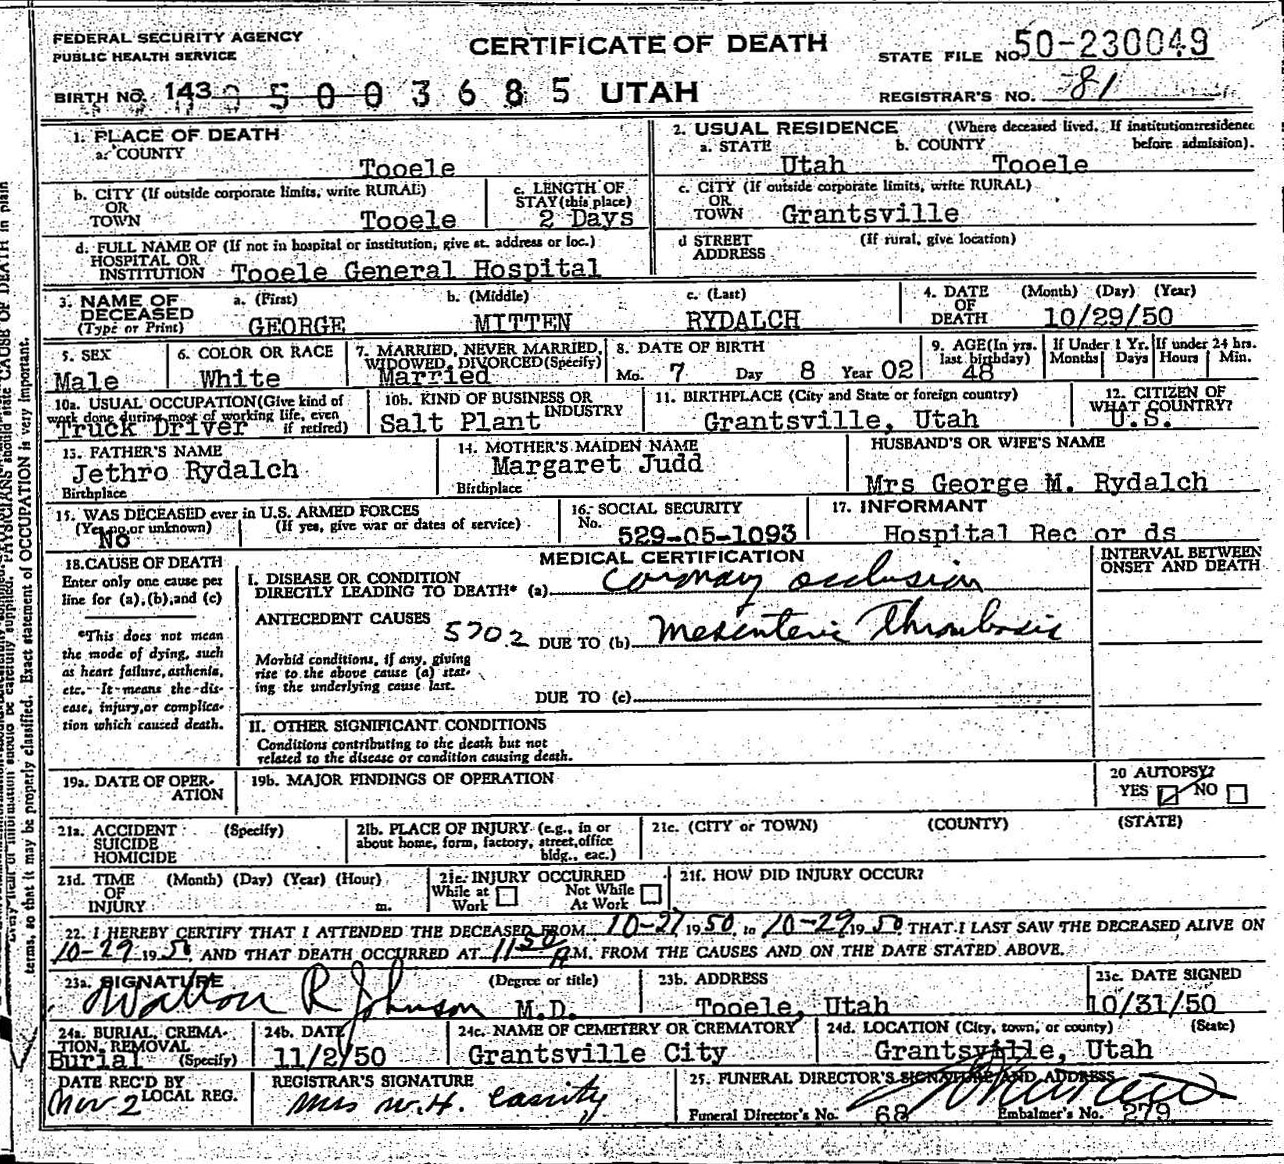 FEDERAL SECURITY AGENCY
PUBLIC HEALTH SERVICE
CERTIFICATE OF DEATH
STATE FILE NO. 50-230049
BIRTH NO. 143 5003685 UTAH
REGISTRAR'S NO. 81
1. PLACE OF DEATH
a. COUNTY
Tooele
2. USUAL RESIDENCE (Where deceased lived. If institution:residence before admission).
a. STATE Utah b. COUNTY Tooele
b. CITY (If outside corporate limits, write RURAL)
OR
TOWN Tooele
c. LENGTH OF
STAY (this place)
2 Days
c. CITY (If outside corporate limits, write RURAL)
OR
TOWN Grantsville
d. FULL NAME OF (If not in hospital or institution, give st. address or loc.)
HOSPITAL OR
INSTITUTION Tooele General Hospital
d STREET (If rural, give location)
ADDRESS
3. NAME OF
DECEASED
(Type or Print)
a. (First) b. (Middle) c. (Last)
GEORGE MITTEN RYDALCH
4. DATE (Month) (Day) (Year)
OF
DEATH 10/29/50
5. SEX
Male
6. COLOR OR RACE
White
7. MARRIED, NEVER MARRIED,
WIDOWED, DIVORCED (Specify)
Married
8. DATE OF BIRTH
Mo. 7 Day 8 Year 02
9. AGE (In yrs.
last birthday)
48
If Under 1 Yr.
Months Days
If under 24 hrs.
Hours Min.
10a. USUAL OCCUPATION (Give kind of
work done during most of working life, even
if retired)
Truck Driver
10b. KIND OF BUSINESS OR
INDUSTRY
Salt Plant
11. BIRTHPLACE (City and State or foreign country)
Grantsville, Utah
12. CITIZEN OF
WHAT COUNTRY?
U.S.
13. FATHER'S NAME
Jethro Rydalch
Birthplace
14. MOTHER'S MAIDEN NAME
Margaret Judd
Birthplace
HUSBAND'S OR WIFE'S NAME
Mrs George M. Rydalch
15. WAS DECEASED ever in U.S. ARMED FORCES
(Yes, no, or unknown) (If yes, give war or dates of service)
No
16. SOCIAL SECURITY
No. 529-05-1093
17. INFORMANT
Hospital Rec or ds
18. CAUSE OF DEATH
Enter only one cause per
line for (a), (b), and (c)
*This does not mean
the mode of dying, such
as heart failure, asthenia,
etc. It means the dis-
ease, injury, or complica-
tion which caused death.
MEDICAL CERTIFICATION
INTERVAL BETWEEN
ONSET AND DEATH
I. DISEASE OR CONDITION
DIRECTLY LEADING TO DEATH* (a) Coronary occlusion
ANTECEDENT CAUSES
5702 DUE TO (b) Mesenteric Thrombosis
Morbid conditions, if any, giving
rise to the above cause (a) stat-
ing the underlying cause last.
DUE TO (c)
II. OTHER SIGNIFICANT CONDITIONS
Conditions contributing to the death but not
related to the disease or condition causing death.
19a. DATE OF OPER-
ATION
19b. MAJOR FINDINGS OF OPERATION
20 AUTOPSY?
YES NO
21a. ACCIDENT (Specify)
SUICIDE
HOMICIDE
21b. PLACE OF INJURY (e.g., in or
about home, form, factory, street, office
bldg., eac.)
21c. (CITY or TOWN) (COUNTY) (STATE)
21d. TIME (Month) (Day) (Year) (Hour)
OF
INJURY m.
21e. INJURY OCCURRED
While at Work Not While At Work
21f. HOW DID INJURY OCCUR?
22. I HEREBY CERTIFY THAT I ATTENDED THE DECEASED FROM 10-27 1950, to 10-29, 1950 THAT I LAST SAW THE DECEASED ALIVE ON
10-29 1950 AND THAT DEATH OCCURRED AT 1150 A M. FROM THE CAUSES AND ON THE DATE STATED ABOVE.
23a. SIGNATURE (Degree or title)
Walton R Johnson M.D.
23b. ADDRESS
Tooele, Utah
23c. DATE SIGNED
10/31/50
24a. BURIAL, CREMA-
TION, REMOVAL
(Specify)
Burial
24b. DATE
11/2/50
24c. NAME OF CEMETERY OR CREMATORY
Grantsville City
24d. LOCATION (City, town, or county) (State)
Grantsville, Utah
DATE REC'D BY
LOCAL REG.
Nov 2
REGISTRAR'S SIGNATURE
Mrs W. H. Cassity
25. FUNERAL DIRECTOR'S SIGNATURE AND ADDRESS
Funeral Director's No. 68 Embalmer's No. 279